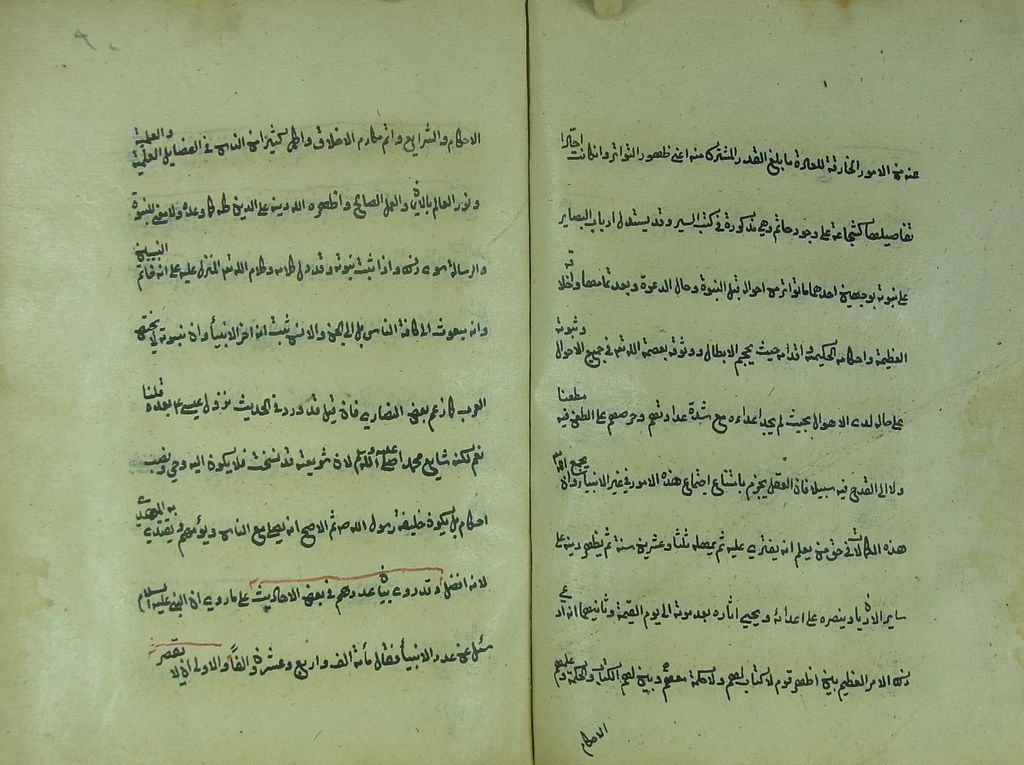 عنه من الامور الخارقة للعادة ما بلغ القدر المشترك منه اعنى ظهور التواتر وان كانت
تفاصيلها كشجاعة على وجود حاتم وهي مذكورة في كتب السير وقد يستدل ارباب البصاير
على نبوته بوجهين احدهما ما تواتر من احواله قبل النبوة وحال الدعوة وبعد تمامها واخلاقه
العظيمة واحكامه الحكيمة واقدامه حيث يحجم الابطال ووثوقه بعصمة الله تعه في جميع الاحوال وثبوته
على حاله لدى الاهوال بحيث لم يجد اعداءه مع شدة عداوتهم وحرصهم على الطعن فيه مطعنا
ولا الى القدح فيه سبيلا فان العقل يجزم بامتناع اجتماع هذه الامور في غير الانبياء وان يجمع الله
هذه الكمالات في حق من يعلم انه يفتري عليه ثم يمهله ثلثا وعشرين سنة ثم يظهر دينه على
ساير الاديان وينصره على اعدائه ويحيي اثاره بعد موته الى يوم القيمة وثانيهما انه ادعي
ذلك الامر العظيم بين اظهر قوم لا كتاب لهم ولا حكمة معهم وبين لهم الكتاب والحكمة وعلمهم
الاحكام
الاحكام والشرايع واتم مكارم الاخلاق واكمل كثيرا من الناس في الفضايل العلمية والعملية
ونور العالم بالايمان والعمل الصالح واظهره الله دينه على الدين كله كما وعده ولا معنى للنبوة
والرسالة سوى ذلك واذا ثبت نبوته وقد دل كلامه وكلام الله تعه المنزل عليه على انه خاتم النبيين
وانه مبعوث الى كافة الناس بل الى الجن والانس ثبت انه اخر الانبياء وان نبوته لا يختص
العرب كما زعم بعض النصاري فان قيل قد ورد في الحديث نزول عيسى ع م بعده قلنا
نعم لكنه يتابع محمدا صلى الله عليه وسلم لان شريعته قد نسخت فلا يكون اليه وحي ونصب
احكام بل يكون خليفة رسول الله صم ثم الاصح انه يصلى مع الناس ويؤمهم ويقتدي به المهدي
لانه افضل وقد روى بيان عددهم في بعض الاحاديث على ما روي ان النبي عليه السلام
سئل عن عدد الانبياء فقال مأئة الف واربع وعشرون الفا والاولى ان لا يقصر